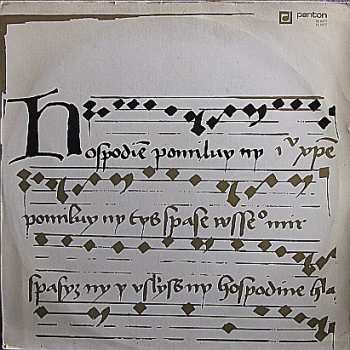 panton
Hospodie pomiluy ny i᷎ⷹ xp̅e
pomiluy ny tys spase wsseᵒ mir
spasyz ny y vslyss ny hospodine hla